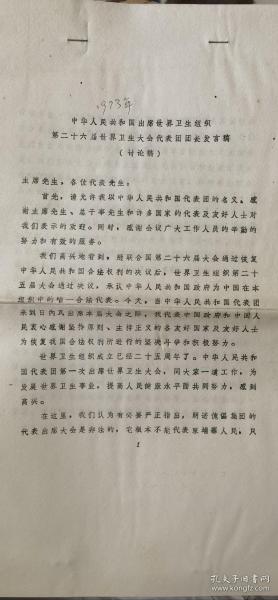 1973年
中华人民共和国出席世界卫生组织
第二十六届世界卫生大会代表团团长发言稿
(讨论稿)
主席先生，各位代表先生：
首先，请允许我以中华人民共和国代表团的名义，感
谢主席先生、总干事先生和许多国家的代表及友好人士对
我们表示的欢迎。同时，感谢会议广大工作人员的辛勤的
努力和有效的服务。
我们高兴地看到，继联合国第二十六届大会通过恢复
中华人民共和国合法权利的决议后，世界卫生组织第二十
五届大会通过决议，承认中华人民共和国政府为中国在本
组织中的唯一合法代表。今天，当中华人民共和国代表团
来到日内瓦出席本届大会之际，我代表中国政府和中国人
民衷心感谢坚持原则、主持正义的各友好国家及友好人士
为恢复我国合法权利所进行的坚决斗争和积极努力。
世界卫生组织成立已经二十五周年了。中华人民共和
国代表团第一次出席世界卫生大会，同大家一道工作，为
发展世界卫生事业，提高人民健康水平而共同努力，感到
高兴。
在这里，我们认为有必要严正指出，朗诺傀儡集团的
代表出席大会是非法的，它根本不能代表柬埔寨人民，只
1
孔夫子旧书网